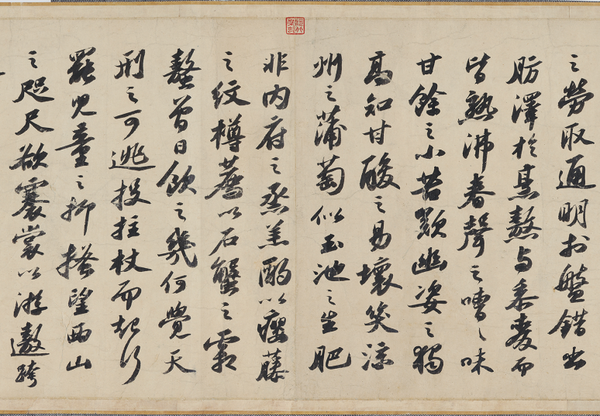 之勞取通明於盤錯出
肪澤於烹熬與黍麥而
皆熟沸舂聲之嘈〻味
甘餘之小苦歎幽姿之獨
高知甘酸之易壞笑涼
州之蒲萄似玉池之生肥
非內府之蒸羔酌以癭藤
之紋樽薦以石蟹之霜
螯曾日飲之幾何覺天
刑之可逃投拄杖而起行
罷兒童之抑搔望西山
之咫尺欲褰裳以游遨跨